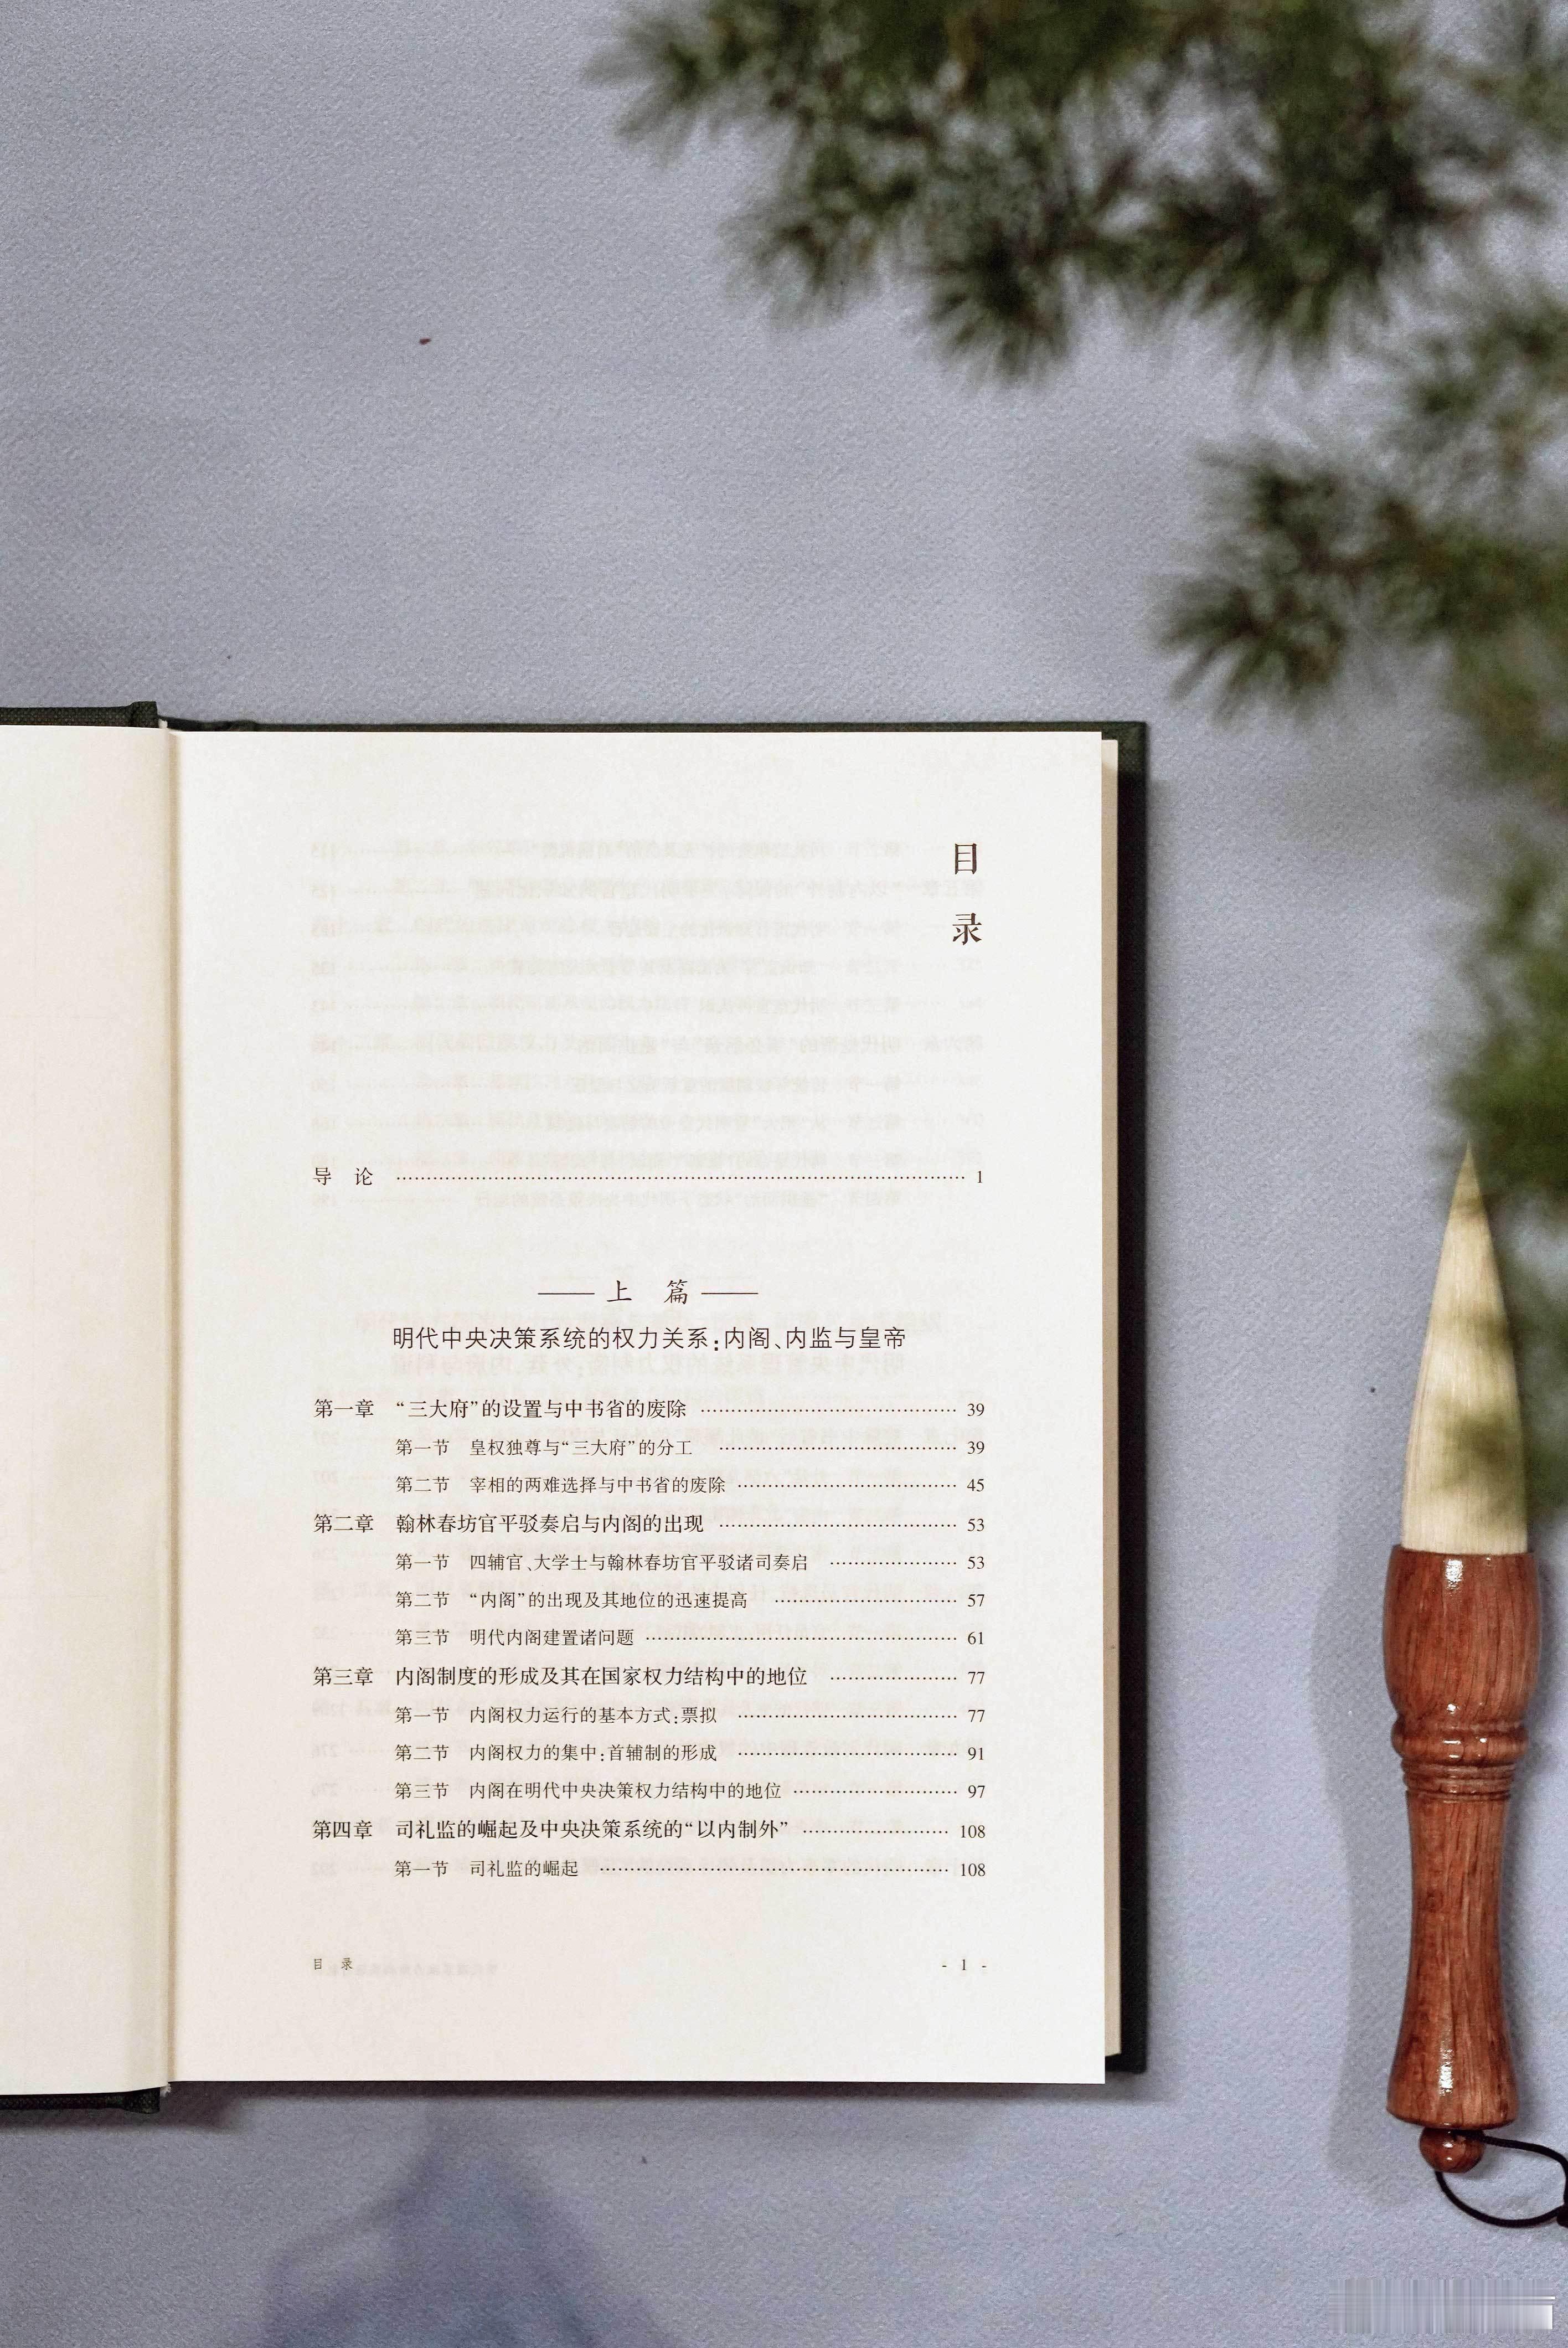 目录
导 论 ………… 1
—— 上 篇 ——
明代中央决策系统的权力关系:内阁、内监与皇帝
第一章 “三大府”的设置与中书省的废除 ………… 39
第一节 皇权独尊与“三大府”的分工 ………… 39
第二节 宰相的两难选择与中书省的废除 ………… 45
第二章 翰林春坊官平驳奏启与内阁的出现 ………… 53
第一节 四辅官、大学士与翰林春坊官平驳诸司奏启 ………… 53
第二节 “内阁”的出现及其地位的迅速提高 ………… 57
第三节 明代内阁建置诸问题 ………… 61
第三章 内阁制度的形成及其在国家权力结构中的地位 ………… 77
第一节 内阁权力运行的基本方式:票拟 ………… 77
第二节 内阁权力的集中:首辅制的形成 ………… 91
第三节 内阁在明代中央决策权力结构中的地位 ………… 97
第四章 司礼监的崛起及中央决策系统的“以内制外” ………… 108
第一节 司礼监的崛起 ………… 108
目 录 - 1 -